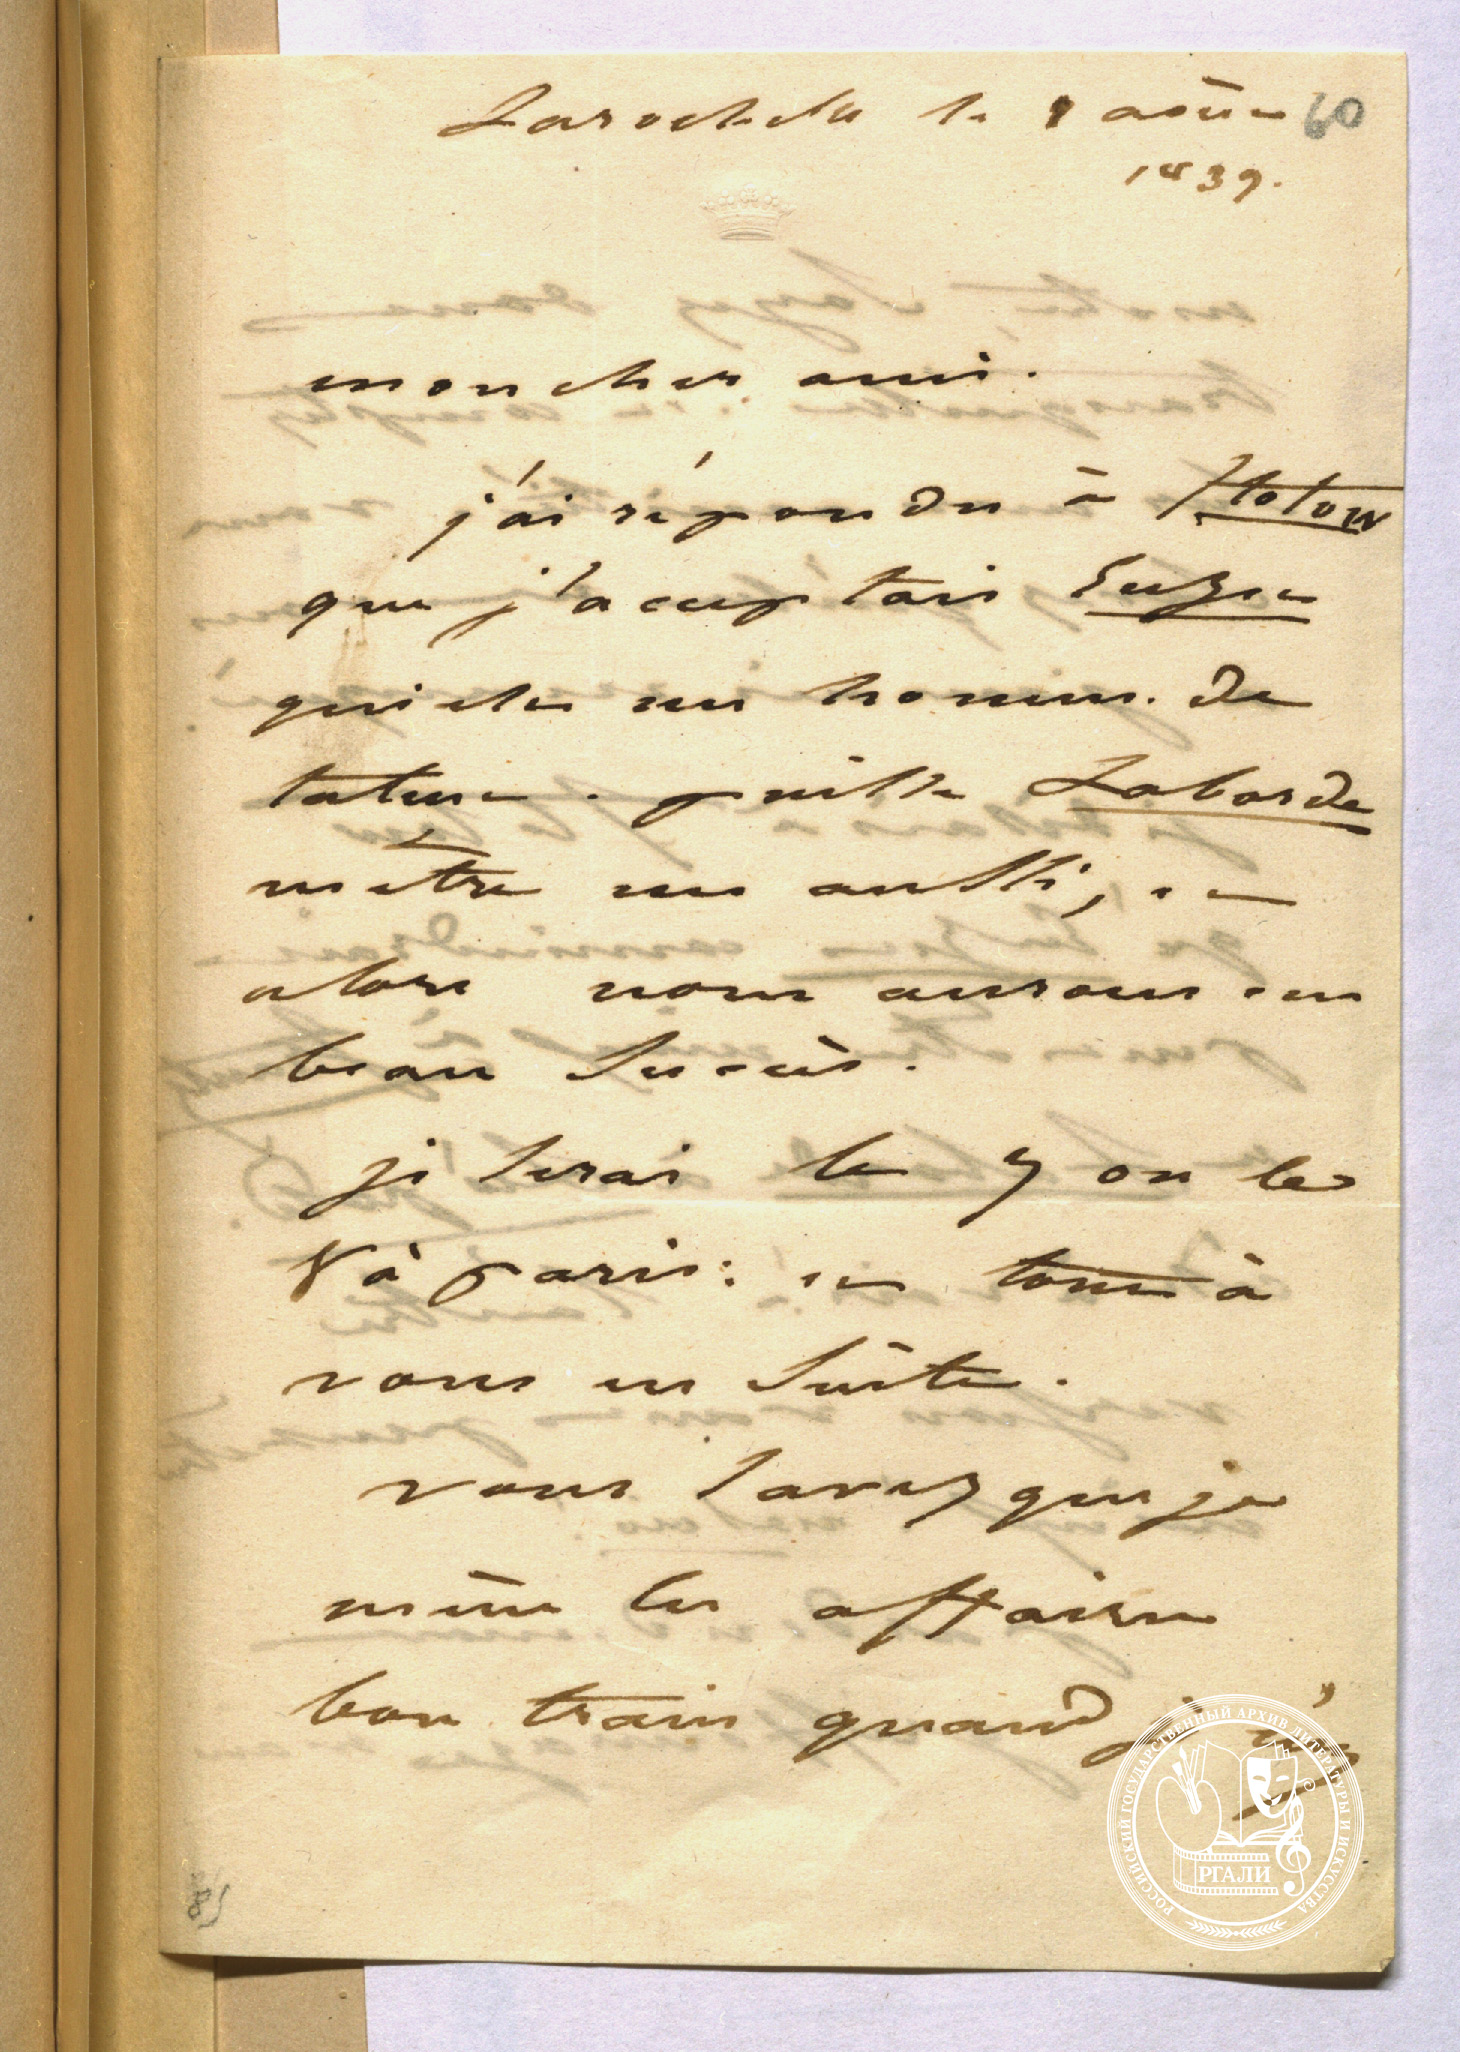 Larochelle le 1 août 60
1839.
mon cher ami.
j'ai répondu à Flotow
que j'acceptais Suzon
qui est un homme de
talent. puisse Laborde
m'être un aussi, et
alors nous aurons un
beau succès.
je serai le 7 ou le
8 à paris: et tout à
vous en suite.
vous savez que je
mène les affaires
bon train quand je m'y
РОССИЙСКИЙ ГОСУДАРСТВЕННЫЙ АРХИВ ЛИТЕРАТУРЫ И ИСКУССТВА
РГАЛИ